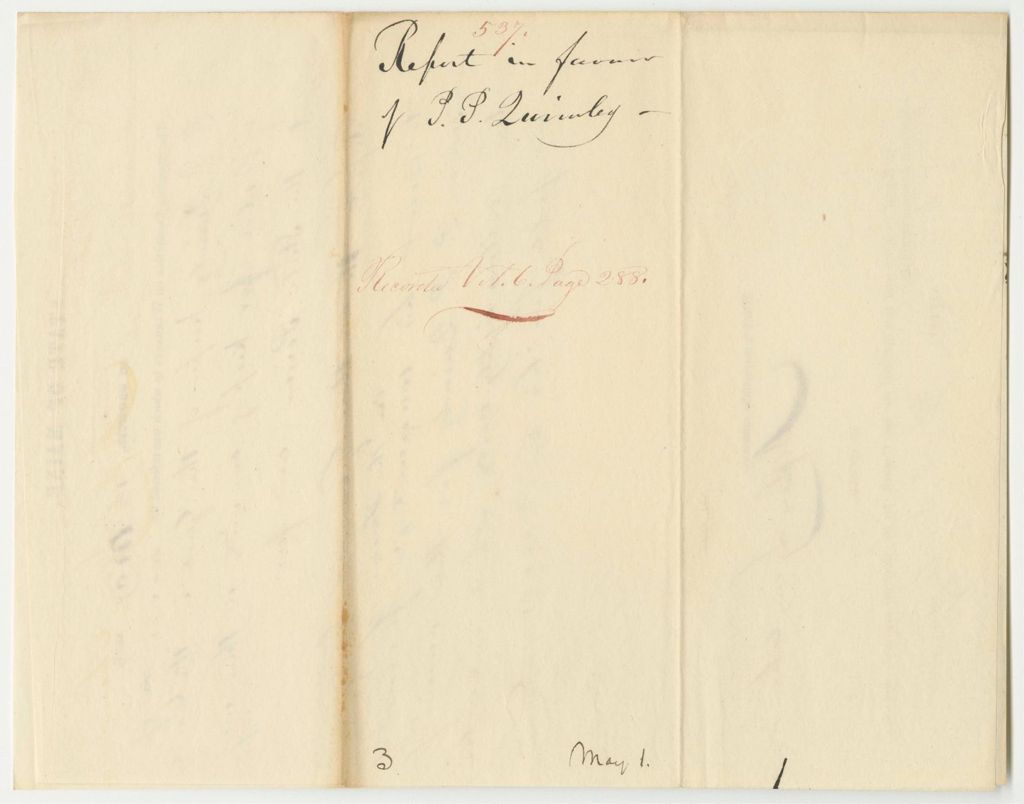 537.
Report in favour
of P. P. Quimby –
Records Vol. 6. Page 288.
3
May 1.